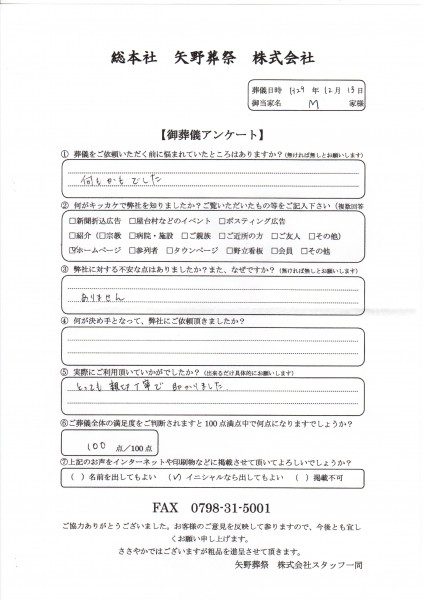 総本社 矢野葬祭 株式会社
葬儀日時 H29 年 12 月 13 日
御当家名 M 家様
【御葬儀アンケート】
① 葬儀をご依頼いただく前に悩まれていたところはありますか?(無ければ無しとお願いします)
何もかもでした
② 何がキッカケで弊社を知りましたか?ご覧いただいたもの等をご記入下さい(複数回答
□新聞折込広告 □屋台村などのイベント □ポスティング広告
□紹介(□宗教 □病院・施設 □ご親族 □ご近所の方 □ご友人 □その他)
☑ホームページ □参列者 □タウンページ □野立看板 □会員 □その他
③ 弊社に対する不安な点はありましたか?また、なぜですか?(無ければ無しとお願いします)
ありません
④ 何が決め手となって、弊社にご依頼頂きましたか?
⑤ 実際にご利用頂いていかがでしたか?(出来るだけ具体的にお願いします)
とっても親切丁寧で助かりました.
⑥ご葬儀全体の満足度をご判断されますと100点満点中で何点になりますでしょうか?
100 点/100点
⑦上記のお声をインターネットや印刷物などに掲載させて頂いてよろしいでしょうか?
( )名前を出してもよい (✓)イニシャルなら出してもよい ( )掲載不可
FAX 0798-31-5001
ご協力ありがとうございました。お客様のご意見を反映して参りますので、今後とも宜し
くお願い申し上げます。
ささやかではございますが粗品を進呈させて頂きます。
矢野葬祭 株式会社スタッフ一同